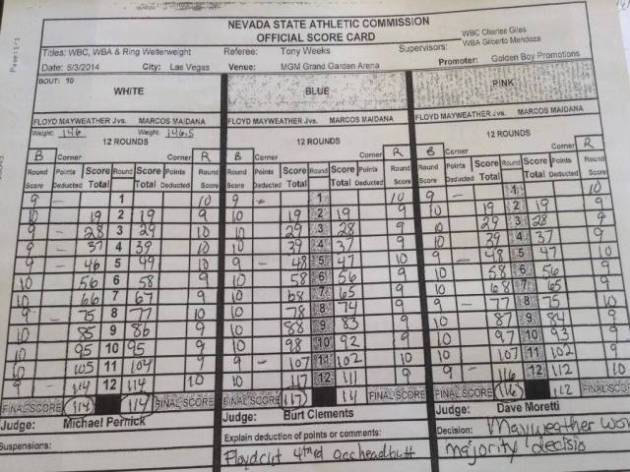 NEVADA STATE ATHLETIC COMMISSION
OFFICIAL SCORE CARD
Titles: WBC, WBA & Ring Welterweight Referee: Tony Weeks Supervisors: WBC Charles Giles
WBA Gilberto Mendoza
Date: 5/3/2014 City: Las Vegas Venue: MGM Grand Garden Arena Promoter: Golden Boy Promotions
BOUT: 10
WHITE BLUE PINK
FLOYD MAYWEATHER Jvs. MARCOS MAIDANA FLOYD MAYWEATHER Jvs. MARCOS MAIDANA FLOYD MAYWEATHER Jvs. MARCOS MAIDANA
Weight: 146 Weight: 146.5
12 ROUNDS 12 ROUNDS 12 ROUNDS
B Corner Corner R B Corner Corner R B Corner Corner R
Round Points Score Round Score Points Round Round Points Score Round Score Points Round Round Points Score Round Score Points Round
Score Deducted Total Total Deducted Score Score Deducted Total Total Deducted Score Score Deducted Total Total Deducted Score
9 - 1 10 9 - 1 10 9 - 1 10
10 19 2 19 9 10 19 2 19 9 10 19 2 19 9
9 - 28 3 29 10 10 29 3 28 9 10 29 3 28 9
9 - 37 4 39 10 10 39 4 37 9 10 39 4 37 9
9 - 46 5 49 10 9 - 48 5 47 10 9 - 48 5 47 10
10 56 6 58 9 10 58 6 56 9 10 58 6 56 9
10 66 7 67 9 10 68 7 65 9 10 68 7 65 9
9 - 75 8 77 10 10 78 8 74 9 9 - 77 8 75 10
10 85 9 86 9 10 88 9 83 9 10 87 9 84 9
10 95 10 95 9 10 98 10 92 9 10 97 10 93 9
10 105 11 104 9 9 - 107 11 102 10 10 107 11 102 9
9 - 114 12 114 10 10 117 12 111 9 9 - 116 12 112 10
FINAL SCORE 114 114 FINAL SCORE FINAL SCORE 117 111 FINAL SCORE FINAL SCORE 116 112 FINAL SCORE
Judge: Michael Pernick Judge: Burt Clements Judge: Dave Moretti
Suspensions: Explain deduction of points or comments: Decision: Mayweather won
Floyd cut 4th rd acc headbutt majority decisio